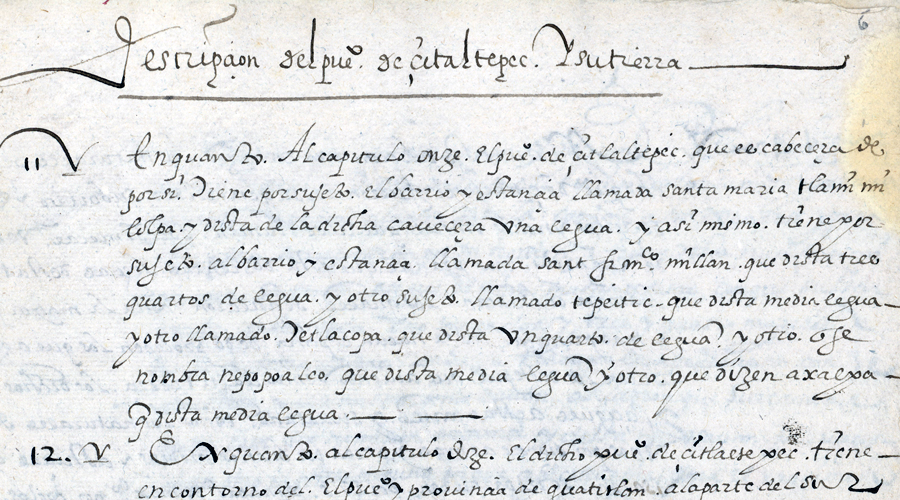 6
Descripçion del pueº. de çitaltepec. Y su tierra
11 V En quanto. Al capitulo. onze. El pueº. de çitlaltepec. que es cabeçera de
por si. Tiene por sujeto. El barrio y estançia, llamada santa maria tlami mi
lolpa. y dista de la dicha caveçera una legua. y asi mismo. tiene por
sujeto. al barrio y estançia. llamada sant frnco. millan. que dista tres
quartos. de legua. y otro sujeto. llamado tepeitic. que dista media legua
y otro llamado. Tetlacopa. que dista un quarto. de legua. y otro. q se
nombra nepopoalco. que dista media legua y otro. que dizen axalpa
q dista media legua.
12. V En quanto. al capitulo doze. El dicho pueº. de çitlaltepec. tiene
en contorno del. El pueº y provinçia de quatitlan. a la parte del sur